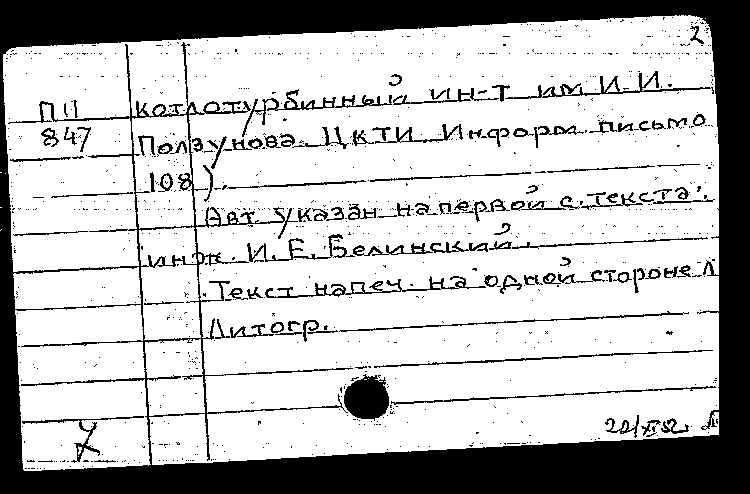 2
П11 котлотурбинный ин-т им И.И.
847 Ползунова. ЦКТИ. Информ. письмо
108).
Авт. указан на первой с. текста:
инж. И. Е. Белинский.
Текст напеч. на одной стороне л
Литогр.
20/XI 52.